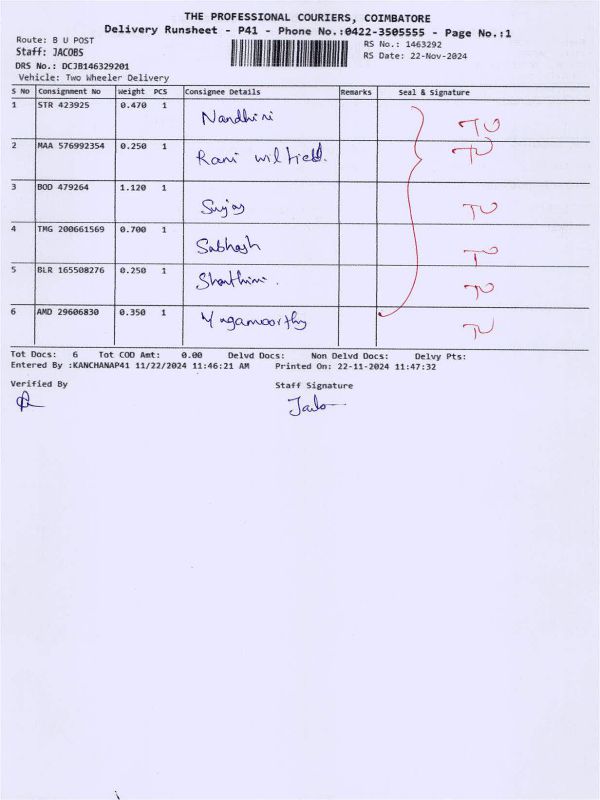 THE PROFESSIONAL COURIERS, COIMBATORE
Delivery Runsheet - P41 - Phone No.:0422-3505555 - Page No.:1
Route: B U POST
RS No.: 1463292
Staff: JACOBS
RS Date: 22-Nov-2024
DRS No.: DCJB146329201
Vehicle: Two Wheeler Delivery
S No Consignment No Weight PCS Consignee Details Remarks Seal & Signature
1 STR 423925 0.470 1 Nandhini TU
2 MAA 576992354 0.250 1 Rani TU
3 BOD 479264 1.120 1 Sujay TU
4 TMG 200661569 0.700 1 Sabhash TU
5 BLR 165508276 0.250 1 Shanthini. TU
6 AMD 29606830 0.350 1 TU
Tot Docs: 6 Tot COD Amt: 0.00 Delvd Docs: Non Delvd Docs: Delvy Pts:
Entered By :KANCHANAP41 11/22/2024 11:46:21 AM Printed On: 22-11-2024 11:47:32
Verified By Staff Signature